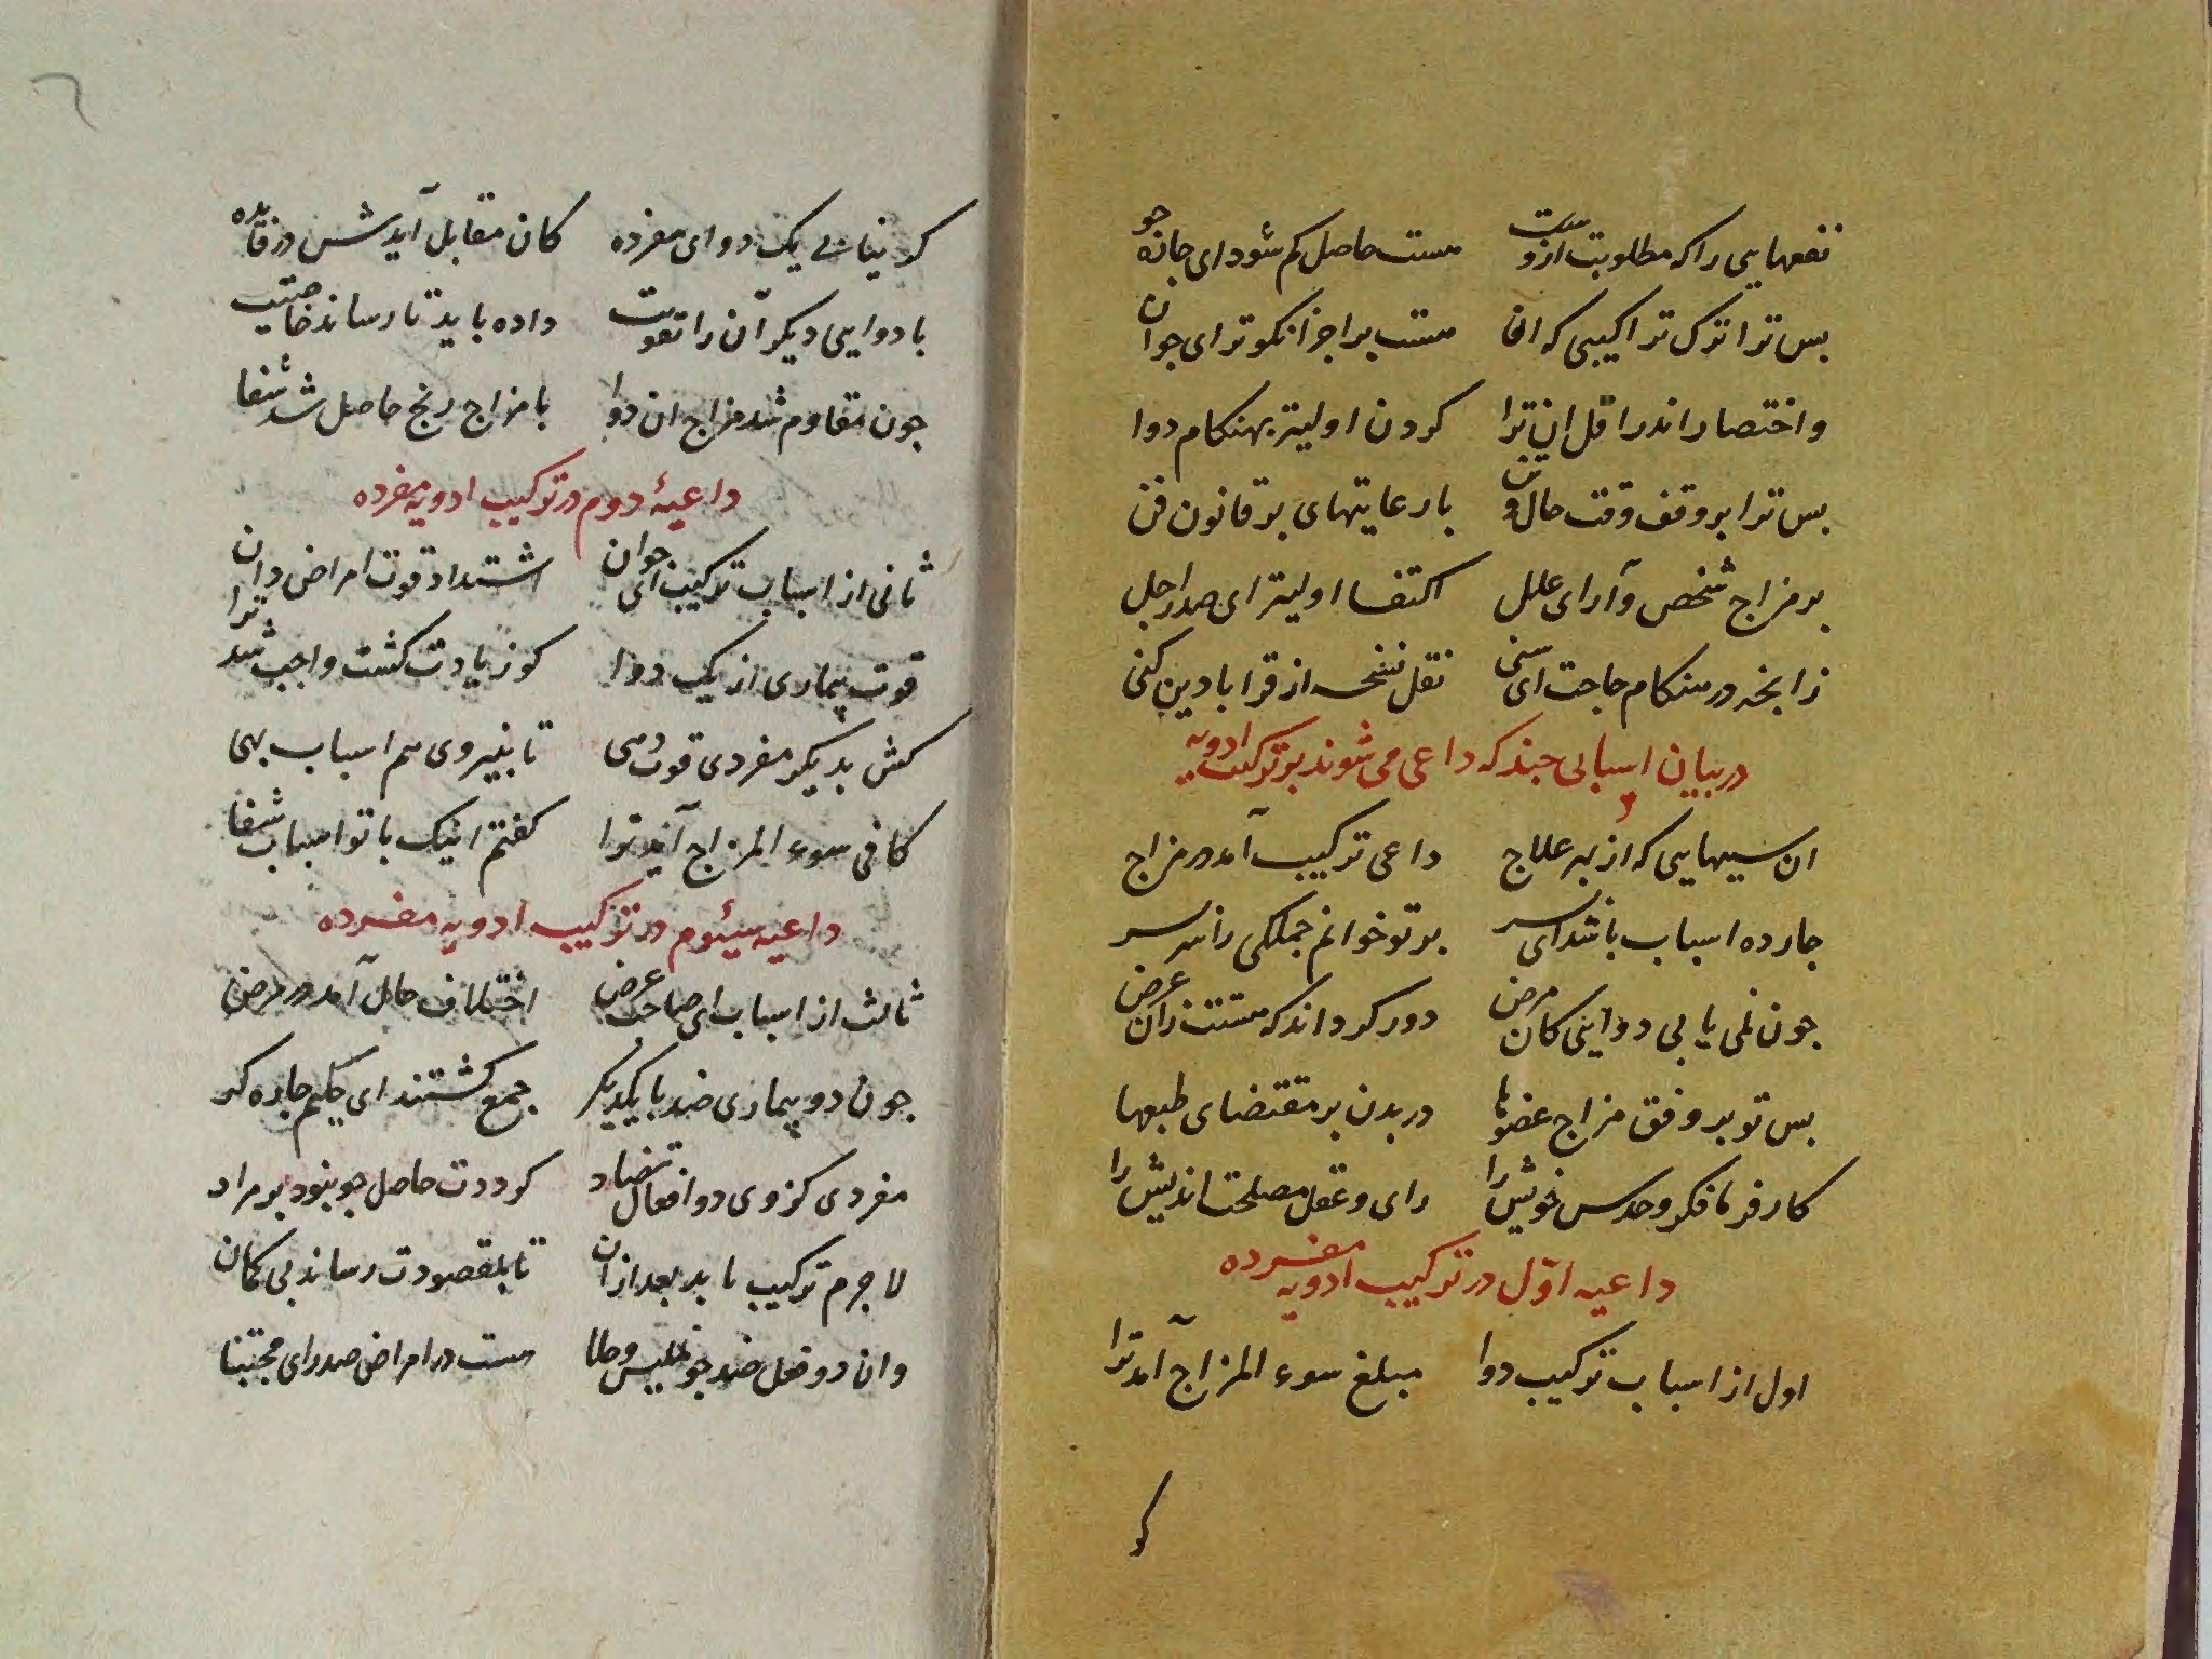 نفعهایی را که مطلوبت ازوست هست حاصل کم شود ای چاره جو
بس ترا ترک تراکیبی که ان هست پر اجزا نکوتر ای جوان
واختصار اندر اقل ان ترا کردن اولیتر بهنکام دوا
بس ترا بر وقف وقت حال و تن با رعایتهای بر قانون فن
بر مزاج شخص و آرای علل اکتفا اولیتر ای صدر اجل
زانجه در هنکام حاجت ای سنی نقل نسخه از قرابادین کنی
در بیان اسبابی جند که داعی می شوند بر ترکیب ادویه
ان سببهایی که از بهر علاج داعی ترکیب آمد در مزاج
جارده اسباب باشد ای بسر بر تو خوانم جملکی را سر بسر
جون نمی یابی دوایی کان مرض دور کرداند که هستت زان غرض
بس تو بر وفق مزاج عضوها در بدن بر مقتضای طبعها
کار فرما فکر و حدس خویش را رای و عقل مصلحت اندیش را
داعیه اوّل در ترکیب ادویه مفرده
اول از اسباب ترکیب دوا مبلغ سوء المزاج آمد ترا
کو
کو نیابی یک دوای مفرده کان مقابل آیدش در فایده
با دوایی دیکر آن را تقویت داده باید تا رساند خاصیت
جون مقاوم شد مزاج ان دوا با مزاج رنج حاصل شد شفا
داعیهٔ دوم در ترکیب ادویه مفرده
ثانی از اسباب ترکیب ای جوان اشتداد قوت امراض دان
قوت بیماری از یک دوا کو زیادت کشت واجب شد ترا
کش بدیکر مفردی قوت دهی تا بنیروی هم اسباب بهی
کافی سوء المزاج آید ترا کفتم اینک با تو اسباب شفا
داعیه سیئوم در ترکیب ادویه مفرده
ثالث از اسباب ای صاحب غرض اختلاف حال آمد در مرض
جون دو بیماری ضد با یکدیکر جمع کشتند ای حکیم جاره کر
مفردی کز وی دو افعال تضاد کرددت حاصل جو نبود بر مراد
لا جرم ترکیب باید بعد ازان تا بمقصودت رساند بی کمان
وان دو فعل ضد جو تحلیس و طلا هست در امراض صدر ای مجتبا